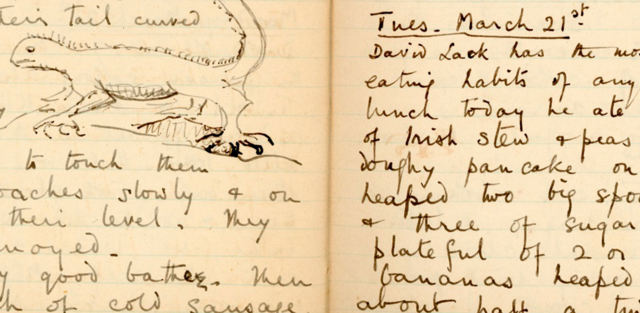 their tail curved
to touch them
oaches slowly & on
their level. They
noyed.
y good bathes. Then
h of cold sausage
Tues. March 21st
David Lack has the mos
eating habits of any
lunch today he ate
of Irish stew & peas
doughy pancake on
heaped two big spoo
& three of sugar
plateful of 2 or
bananas heaped
about half a